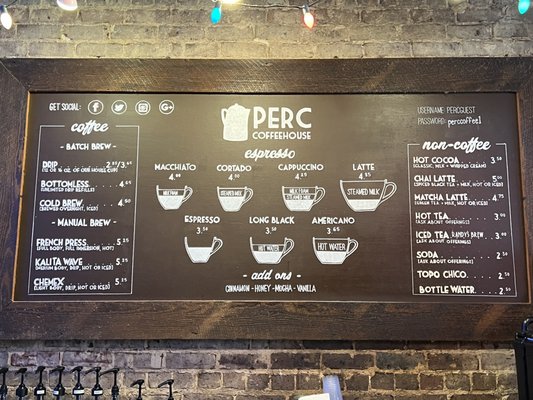 GET SOCIAL:
PERC
COFFEEHOUSE
USERNAME: PERCGUEST
PASSWORD: perccoffee1
coffee
- BATCH BREW -
DRIP
(12 OR 16 OZ. OF OUR HOUSE CUP)
BOTTOMLESS 4.65
(UNLIMITED DRIP REFILLS)
COLD BREW 4.50
(BREWED OVERNIGHT, ICED)
- MANUAL BREW -
FRENCH PRESS 5.25
(FULL BODY, FULL IMMERSION, HOT)
KALITA WAVE 5.25
(MEDIUM BODY, DRIP, HOT OR ICED)
CHEMEX 5.25
(LIGHT BODY, DRIP, HOT OR ICED)
espresso
MACCHIATO CORTADO CAPPUCCINO LATTE
4.00 4.00 4.25
MILK FOAM STEAMED MILK MILK FOAM STEAMED MILK
STEAMED MILK
ESPRESSO LONG BLACK AMERICANO
3.50 3.50 3.65
HOT WATER HOT WATER
- add ons -
CINNAMON - HONEY - MOCHA - VANILLA
non-coffee
HOT COCOA 3.50
(CLASSIC, MILK + WHIPPED CREAM)
CHAI LATTE 5.00
(SPICED BLACK TEA + MILK, HOT OR ICED)
MATCHA LATTE 4.75
(GREEN TEA + MILK, HOT OR ICED)
HOT TEA 3.00
(ASK ABOUT OFFERINGS)
ICED TEA, RANDY'S BREW 3.00
(ASK ABOUT OFFERINGS)
SODA 2.50
(ASK ABOUT OFFERINGS)
TOPO CHICO 2.50
BOTTLE WATER 2.50